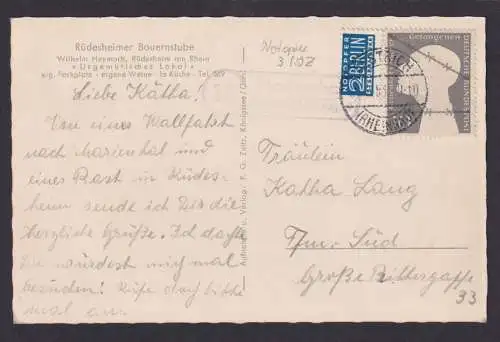 Rüdesheimer Bauernstube
Wilhelm Rüdesheim am Rhein
»Urgemütliches Lokal«
eig. Parkplatz - eigene Weine - la Küche - Tel.
Liebe Kätha!
Von einer Wallfahrt
nach Marienthal und
einer Rast in Rüdes-
heim sende ich Dir die
herzliche Grüße. Ich dachte
Du würdest mich mal
besuchen! Rufe doch bitte
mal an.
Aufnahme u. Verlag: F. G. Zeitz, Königsee/Thür.
Notopfer
3/52
NOTOPFER
2 BERLIN
STEUERMARKE
(RHEINGAU)
Gefangenen
DEUTSCHE BUNDESPOST
Fräulein
Katha Lang
Ffm-Süd
Große Rittergasse
33